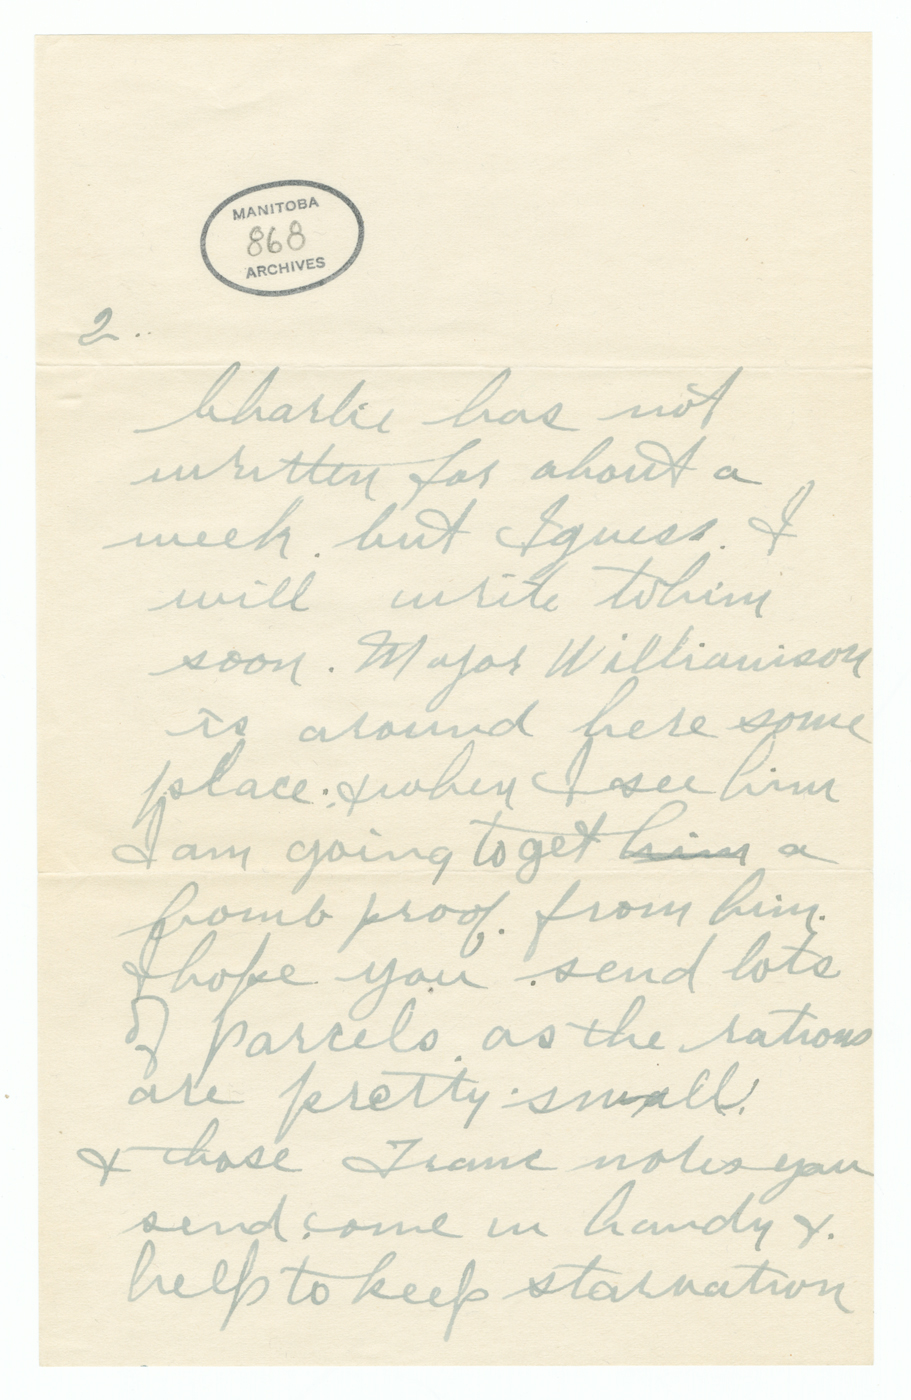 MANITOBA
868
ARCHIVES
2.
Charlie has not
written for about a
week. but I guess. I
will write to him
soon. Major Williamson
is around here some
place. & when I see him
I am going to get him a
bomb proof. from him.
I hope you send lots
of parcels. as the rations
are pretty small.
& those Franc notes you
send. come in handy &.
help to keep starvation